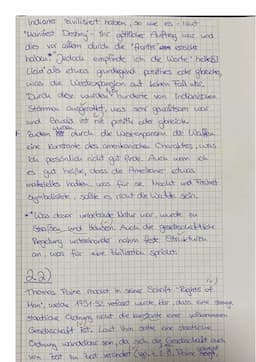 Indianer zivilisiert haben, so wie es - laut
"Manifest Destiny" - ihr göttlicher Auftrag war und
dies vor allem durch die "frontier" erreicht
haben. Jedoch empfinde ich die Worte
als etwas grundlegend positives oder gleiches,
was die Westexpansion auf keinen Fall war.
Durch diese wurden hunderte von Indianer
Stämmen ausgerottet, was sehr grausam war
und Gewalt ist nie positiv oder gleich.
Zudem wurden durch die Westexpansion die Waffen
eine Konstante des amerikanischen Charakters, was
ich persönlich nicht gut finde. Auch wenn ich
es gut heiße, dass die Amerikaner etwas
materielles haben, was für sie Macht und Freiheit
symbolisiert, sollte es nicht die Waffe sein.
* Was davor unberührte Natur war, wurde zu
Straßen und Häusern. Auch die gesellschaftliche
Regelung untereinander nahm feste Strukturen
an, was für eine Zivilisation spricht.
2.2)
Thomas Paine macht in seiner Schrift "Rights of
Man", welche 1791-92 verfasst wurde, klar, dass eine strenge
staatliche Ordnung nicht die Konstante einer vollkommenen
Gesellschaft ist. Laut ihm sollte eine staatliche
Ordnung wandelbar sein, da sich die Gesellschaft auch
von Zeit zu Zeit verändert (vgl. Z. Paine,